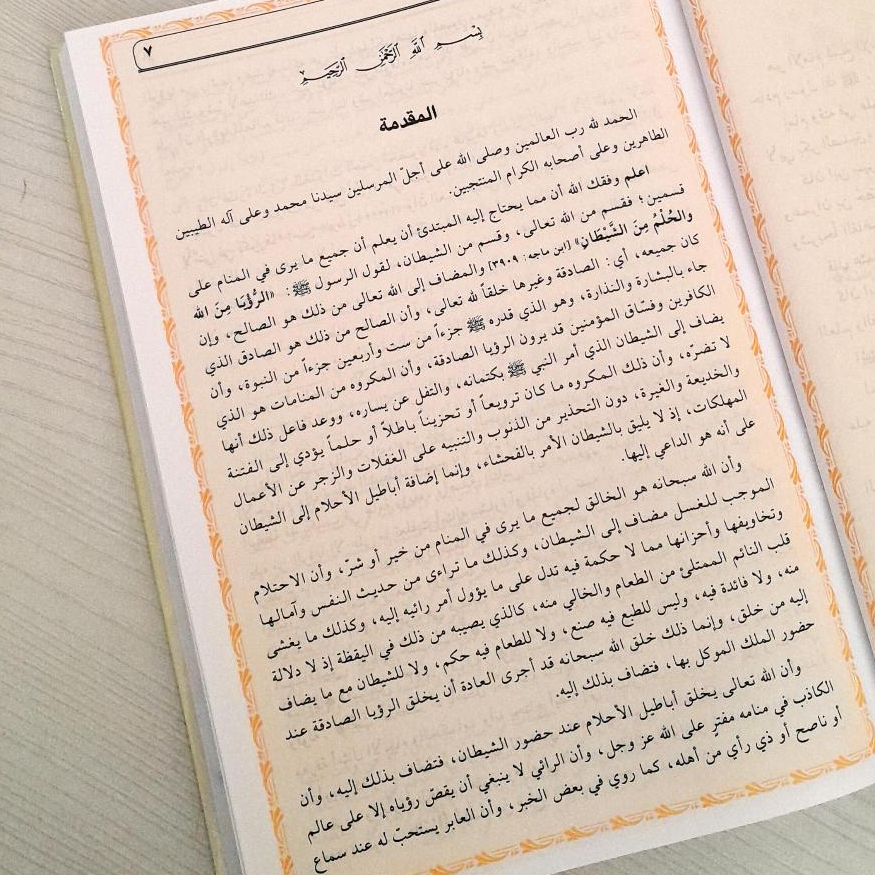 ٧
بسم الله الرحمن الرحيم
المقدمة
الحمد لله رب العالمين وصلى الله على أجلّ المرسلين سيدنا محمد وعلى آله الطيبين
الطاهرين وعلى أصحابه الكرام المنتجبين.
اعلم وفقك الله أن مما يحتاج إليه المبتدئ أن يعلم أن جميع ما يرى في المنام على
قسمين؛ فقسم من الله تعالى، وقسم من الشيطان، لقول الرسول ﷺ: «الرُّؤْيَا مِنَ الله
والحُلْمُ مِنَ الشَّيْطَانِ» [ابن ماجه: ٣٩٠٩] والمضاف إلى الله تعالى من ذلك هو الصالح، وإن
كان جميعه، أي: الصادقة وغيرها خلقاً لله تعالى، وأن الصالح من ذلك هو الصادق الذي
جاء بالبشارة والنذارة، وهو الذي قدره ﷺ جزءاً من ست وأربعين جزءاً من النبوة، وأن
الكافرين وفسّاق المؤمنين قد يرون الرؤيا الصادقة، وأن المكروه من المنامات هو الذي
يضاف إلى الشيطان الذي أمر النبي ﷺ بكتمانه، والتفل عن يساره، ووعد فاعل ذلك أنها
لا تضرّه، وأن ذلك المكروه ما كان ترويعاً أو تحزيناً باطلاً أو حلماً يؤدي إلى الفتنة
والخديعة والغيرة، دون التحذير من الذنوب والتنبيه على الغفلات والزجر عن الأعمال
المهلكات، إذ لا يليق بالشيطان الأمر بالفحشاء، وإنما إضافة أباطيل الأحلام إلى الشيطان
على أنه هو الداعي إليها.
وأن الله سبحانه هو الخالق لجميع ما يرى في المنام من خير أو شرّ، وأن الاحتلام
الموجب للغسل مضاف إلى الشيطان، وكذلك ما تراءى من حديث النفس وآمالها
وتخاويفها وأحزانها مما لا حكمة فيه تدل على ما يؤول أمر رائيه إليه، وكذلك ما يغشى
قلب النائم الممتلئ من الطعام والخالي منه، كالذي يصيبه من ذلك في اليقظة إذ لا دلالة
منه، ولا فائدة فيه، وليس للطبع فيه صنع، ولا للطعام فيه حكم، ولا للشيطان مع ما يضاف
إليه من خلق، وإنما ذلك خلق الله سبحانه قد أجرى العادة أن يخلق الرؤيا الصادقة عند
حضور الملك الموكل بها، فتضاف بذلك إليه.
وأن الله تعالى يخلق أباطيل الأحلام عند حضور الشيطان، فتضاف بذلك إليه، وأن
الكاذب في منامه مفترٍ على الله عز وجل، وأن الرائي لا ينبغي أن يقصّ رؤياه إلا على عالم
أو ناصح أو ذي رأي من أهله، كما روي في بعض الخبر، وأن العابر يستحبّ له عند سماع